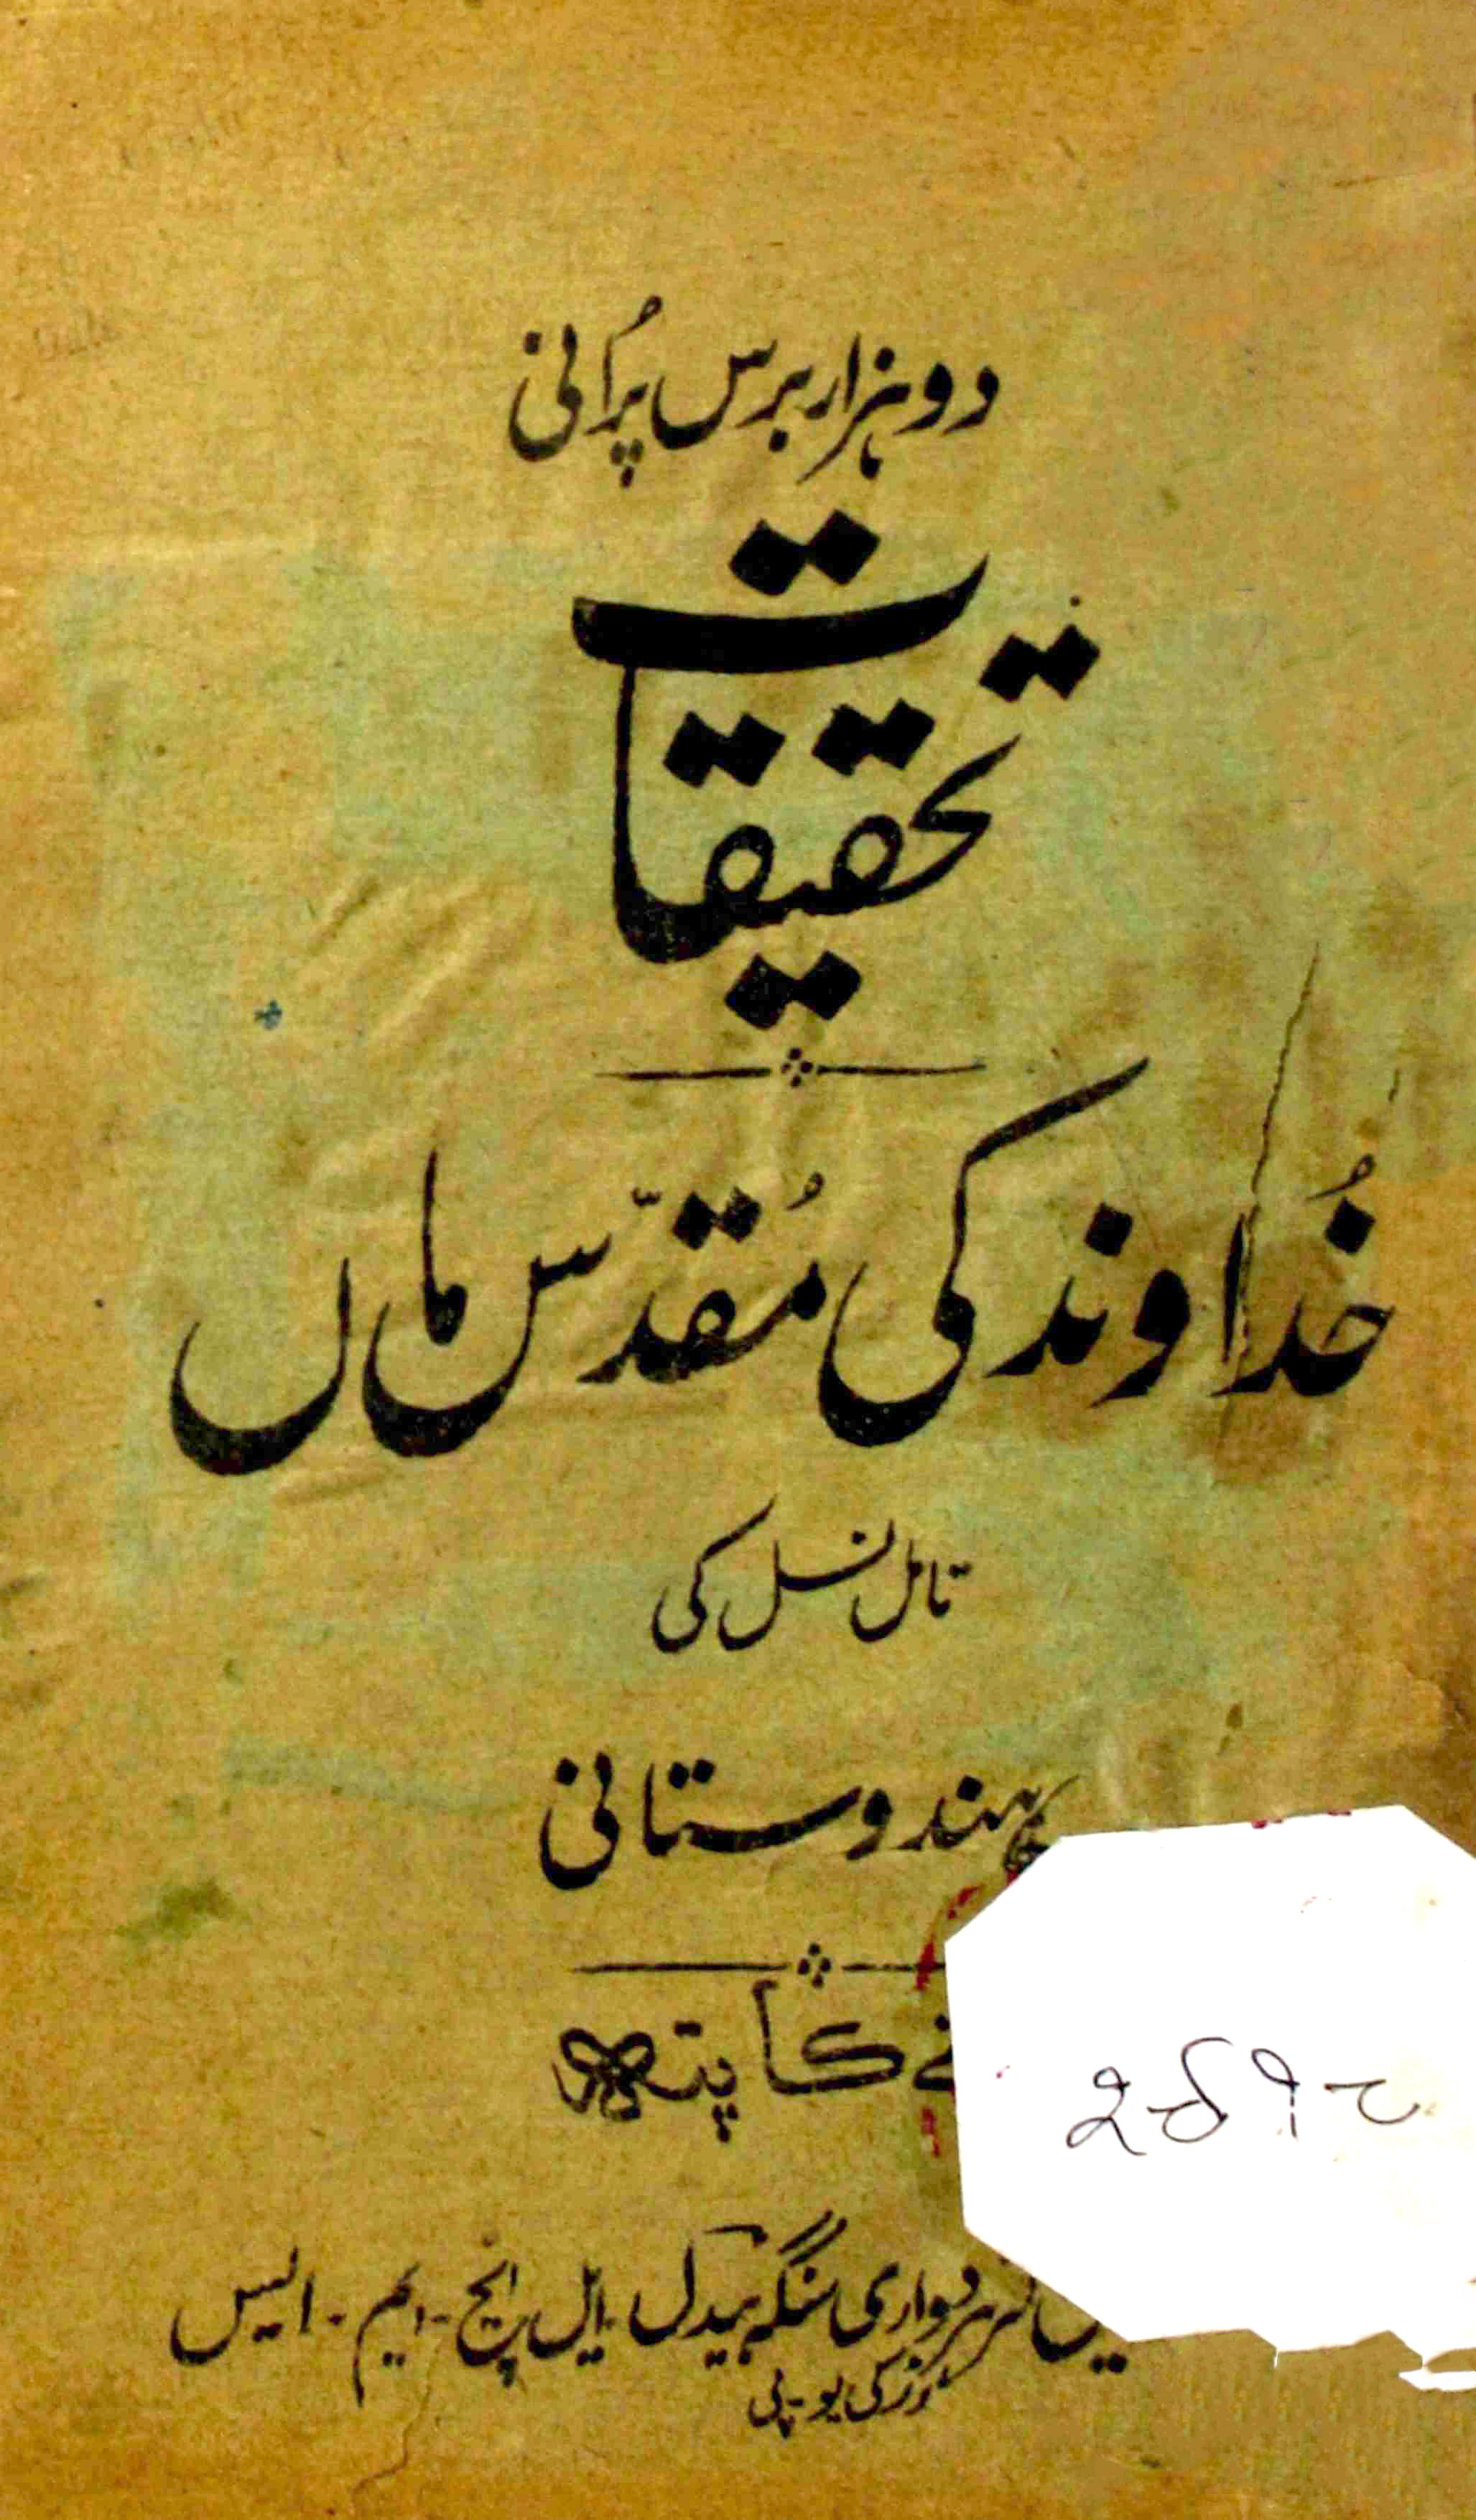 دو ہزار برس پُرانی
تحقیقات
خُداوند کی مُقدّس ماں
تامل نسل کی
ہندوستانی
کا پتہ
ہردواری سنگھ بیدل ایل - ایچ - ایم - ایس
رُڑکی یو - پی